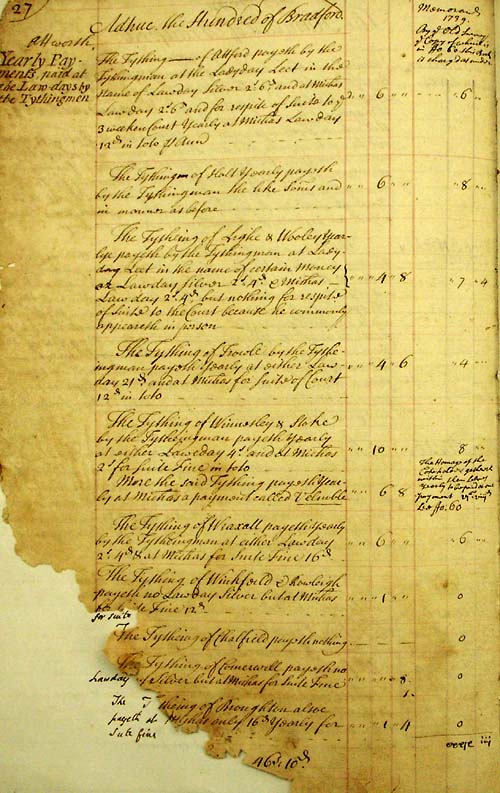 27
Adhuc the Hundred of Bradford
Memorand
1739.
Attworth
Yearly Pay-
ments, paid at
the Law days by
the Tythingmen
The Tything of Attford payeth by the
Tythingman at the Ladyday Leet in the
name of Lawday Silver 2s 6d and at Michas
Law day 2s 6d and for respite of Suite to ye
3 weeken Court Yearly at Michas Law day
12d in toto p Ann
6
6
The Tything of Holt Yearly payeth
by the Tythingman the like Sums and
in manner as before
6
8
The Tything of Lighe & Wooley Year-
lye payeth by the Tythingman at Lady-
day Leet in the name of certain Money
or Lawday Silver 2s 4d & Michas
Law day 2s 4d but nothing for respite
of Suite to the Court because he commonly
appeareth in person
4 8
7 4
The Tything of Trowle by the Tythe-
ingman payeth Yearly at either Law-
day 21d and at Michas for Suite of Court
12d in toto
4 6
4
The Tything of Winnesley & Stoke
by the Tytheingman payeth Yearly
at either Laweday 4s and at Michas
2s for Suite Fine in toto
10
8
More the said Tything payeth Year-
ly at Michas a payment called Velemble
6 8
The Homage of the
within
Yearly to
payment
Lo fo. 60
The Tything of Wraxall payeth Yearly
by the Tytheingman at either Lawday
2s 4d & at Michas for Suite Fine 16d
6
6
The Tything of Winkfeild & Rowleigh
payeth no Lawday Silver but at Michas
for suite Fine 12d
1
0
The Tytheing of Chalfield payeth nothing
0
The Tything of Comerwell payeth no
Lawday Silver but at Michas for Suite Fine
8
0
The Tytheing of Broughton alsoe
payeth at Michas only 16d Yearly for
Sute fine
1 4
0
46s 10d